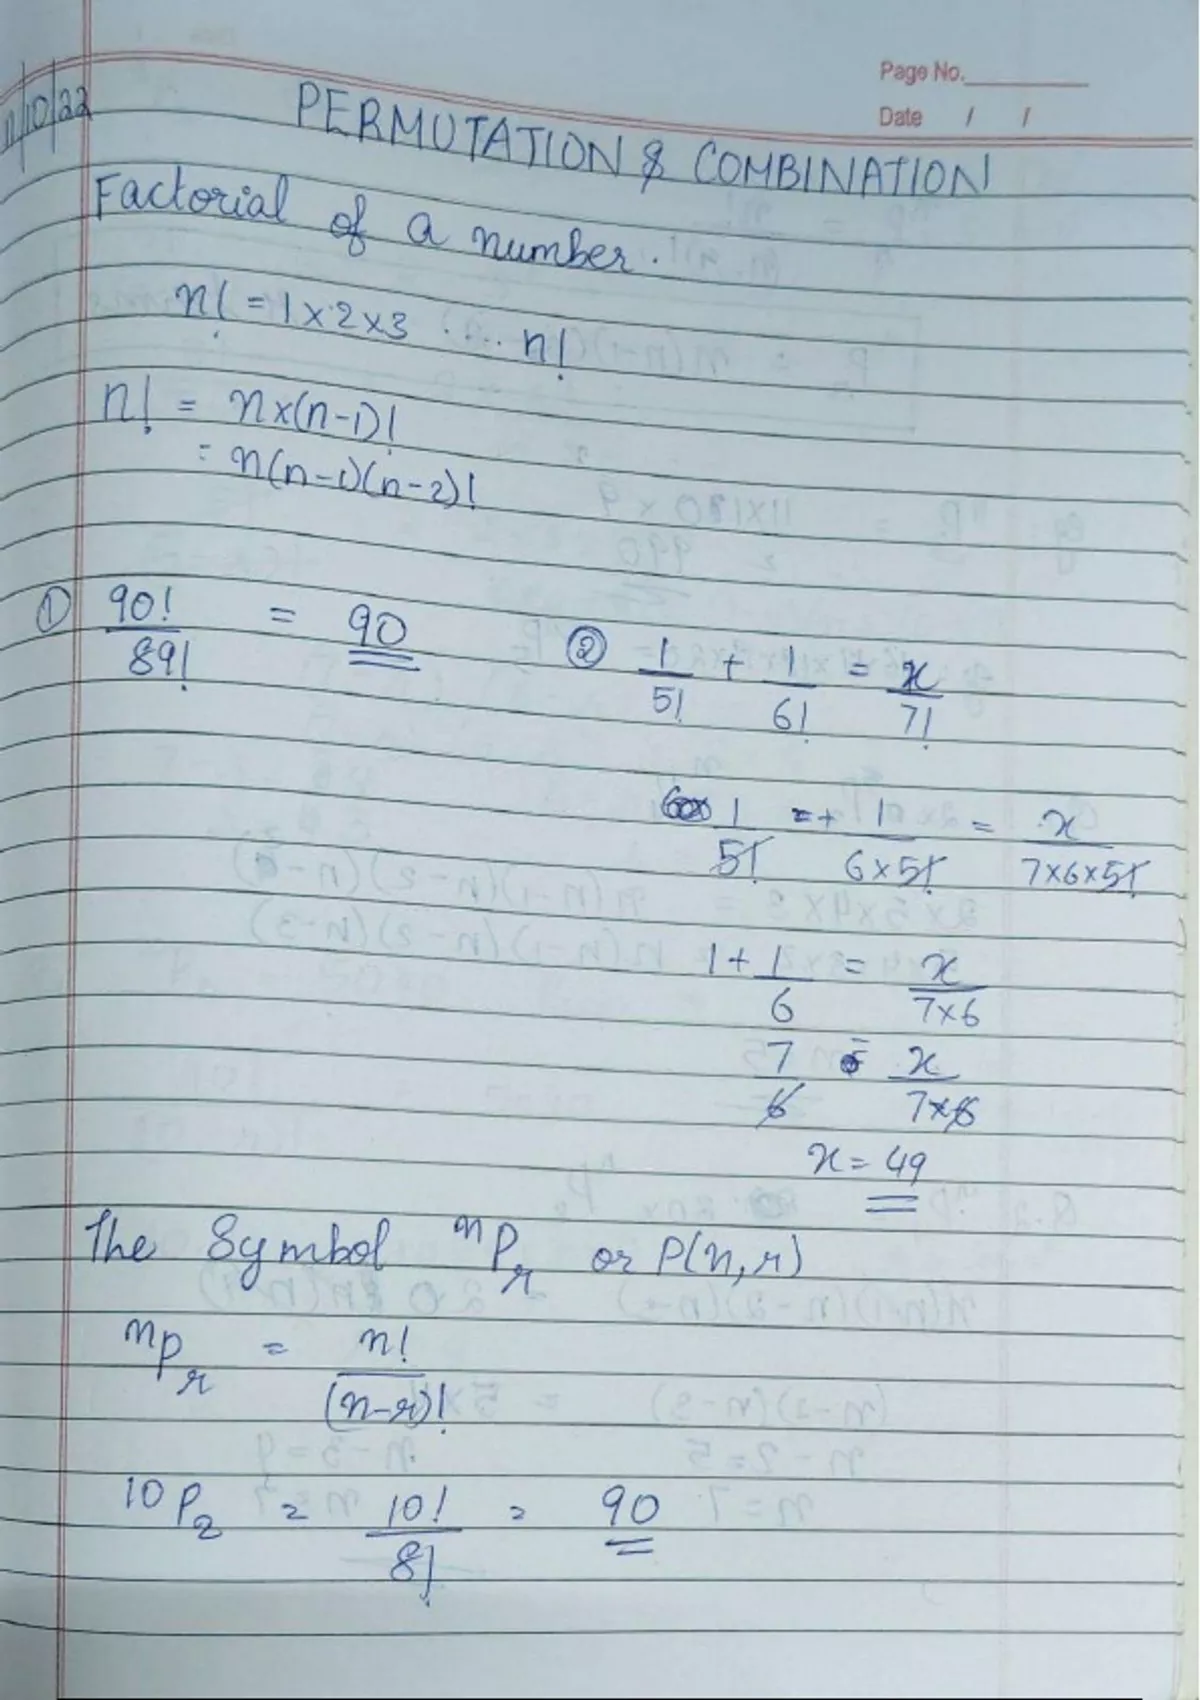 Page No.
Date / /
11/10/22
PERMUTATION & COMBINATION
Factorial of a number.
n! = 1×2×3 .... n!
n! = n×(n-1)!
= n(n-1)(n-2)!
① 90!/89! = 90
② 1/5! + 1/6! = x/7!
1/5! + 1/6×5! = x/7×6×5!
1 + 1/6 = x/7×6
7/6 = x/7×6
x = 49
The Symbol ⁿPᵣ or P(n,r)
ⁿPᵣ = n!/(n-r)!
¹⁰P₂ = 10!/8! = 90